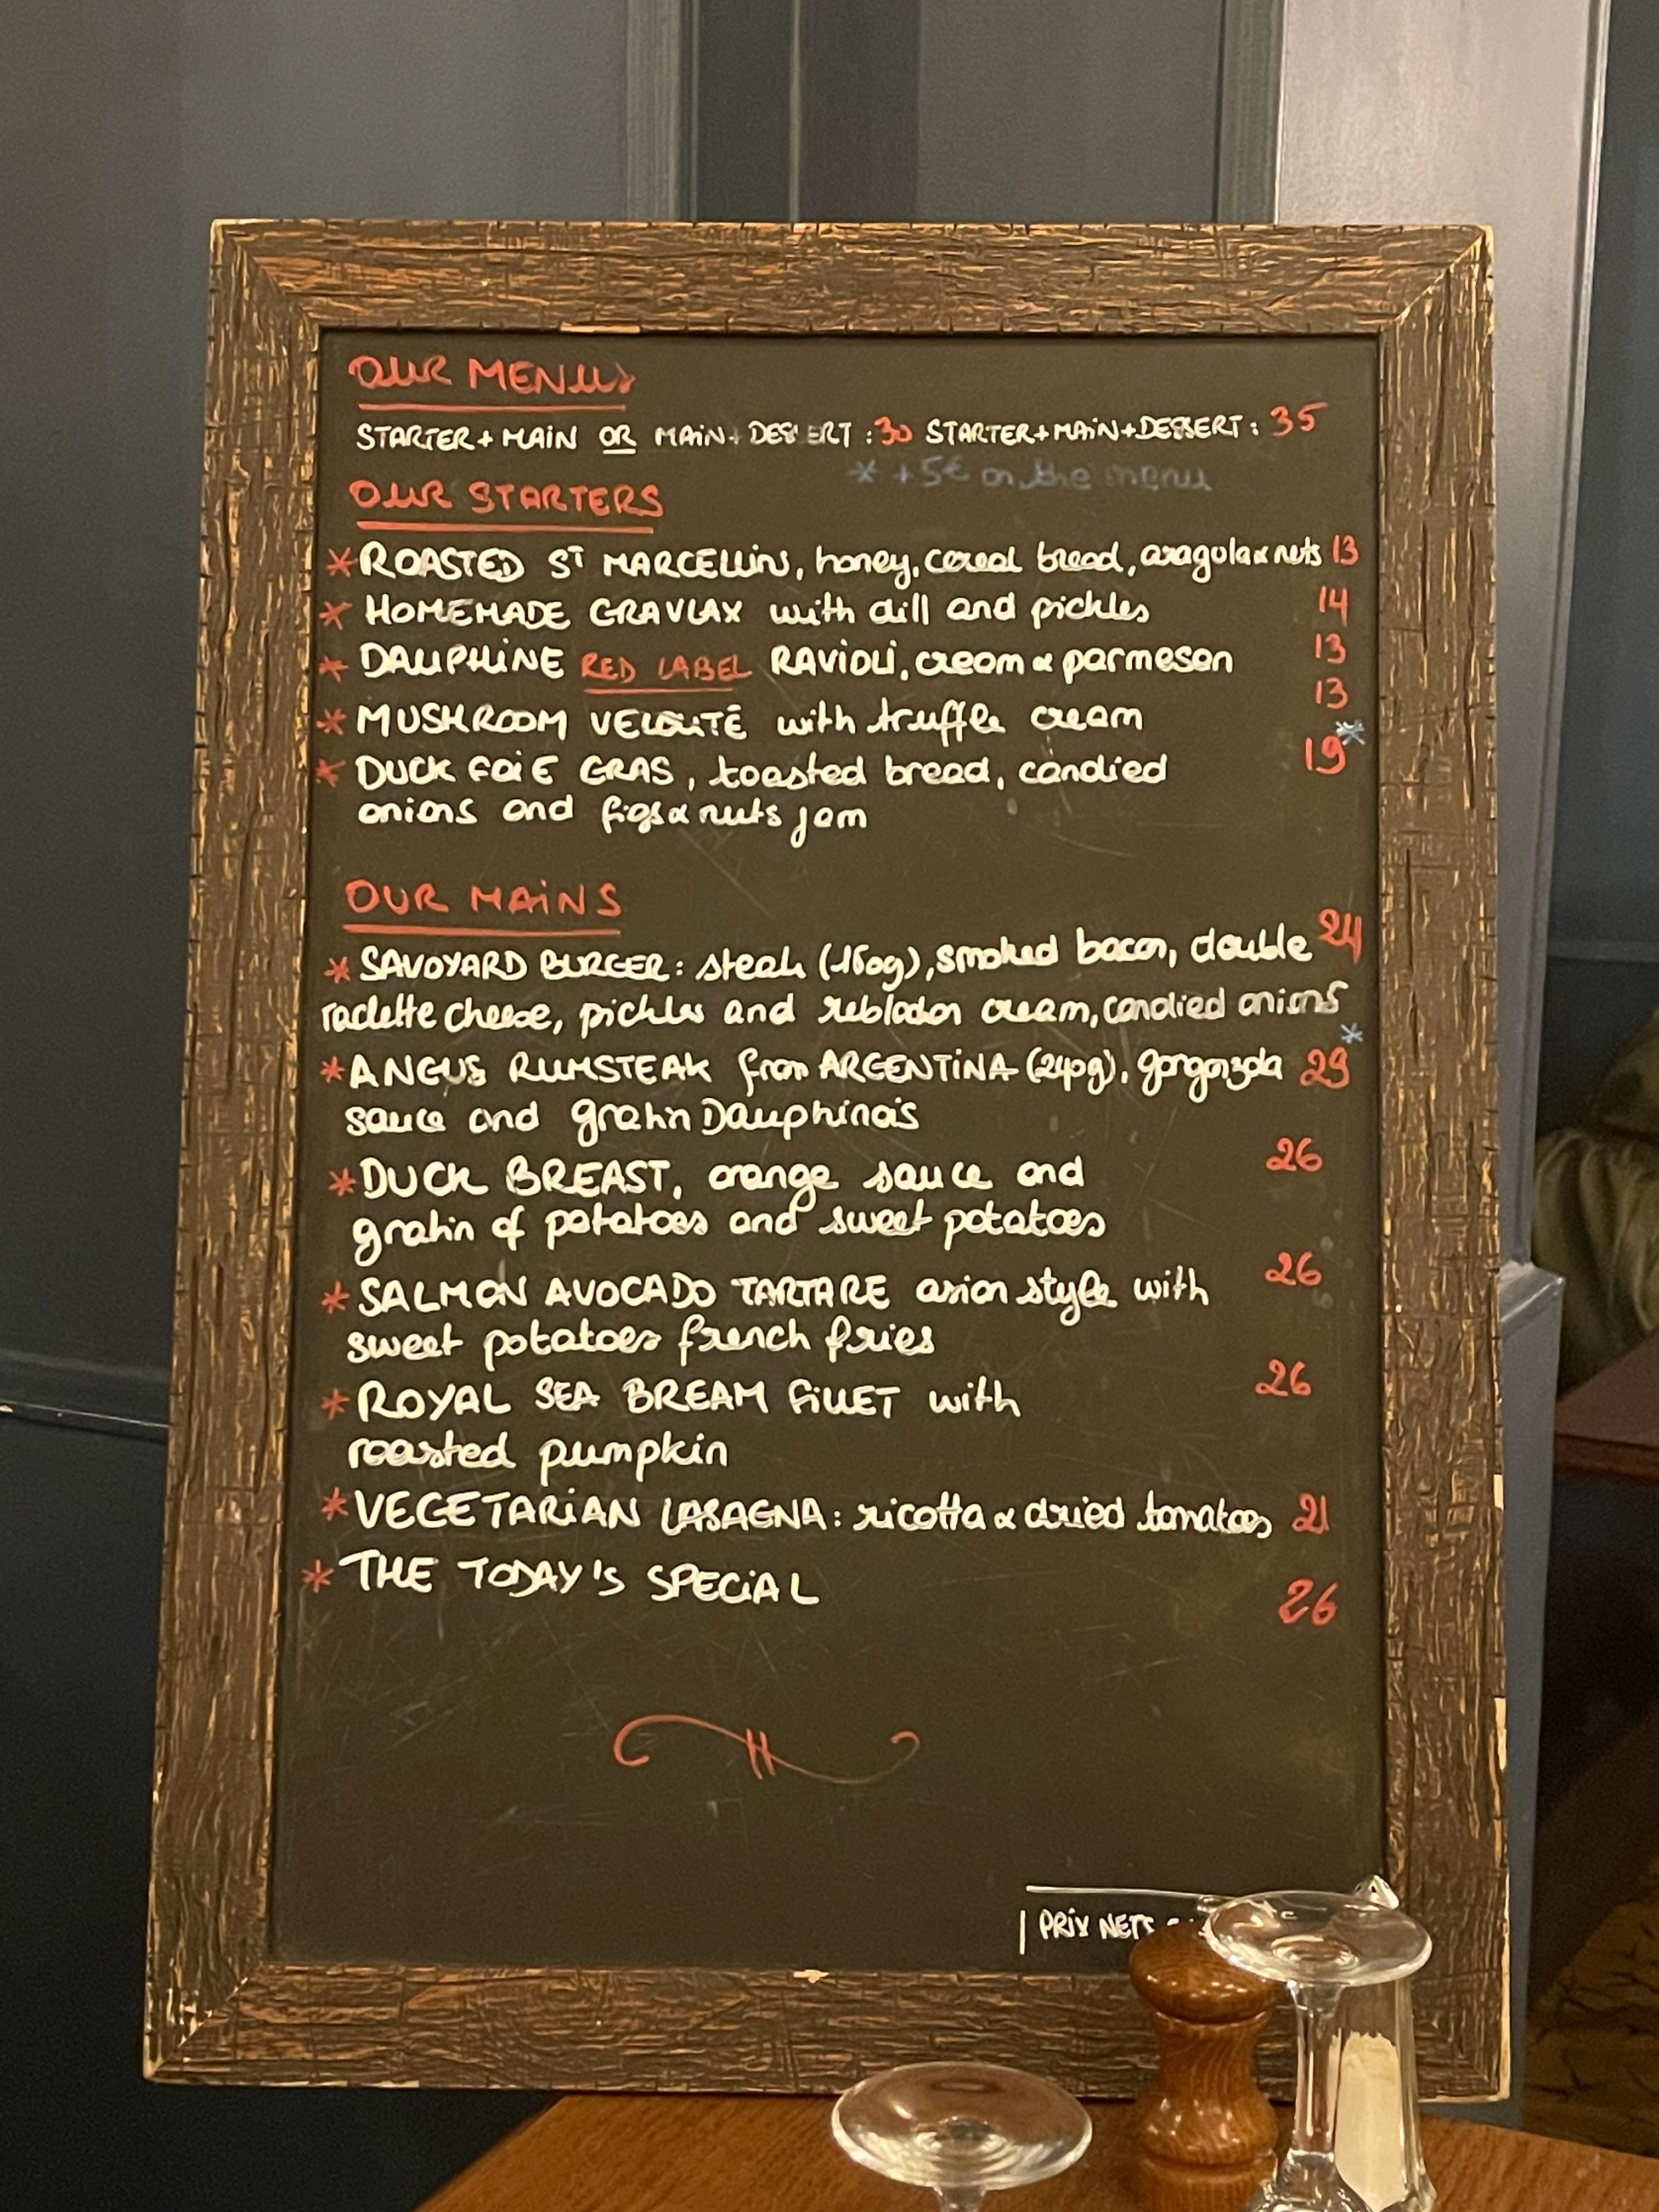 OUR MENUS
STARTER + MAIN OR MAIN + DESSERT : 30 STARTER+MAIN+DESSERT : 35
* +5€ on the menu
OUR STARTERS
* ROASTED ST MARCELLIN, honey, cereal bread, aragula & nuts 13
* HOMEMADE GRAVLAX with dill and pickles 14
* DAUPHINE RED LABEL RAVIOLI, cream & parmesan 13
* MUSHROOM VELOUTÉ with truffle cream 13
* DUCK FOIE GRAS, toasted bread, candied 19*
onions and figs & nuts jam
OUR MAINS
* SAVOYARD BURGER: steak (160g), smoked bacon, double 24
raclette cheese, pickles and reblodon cream, candied onions
* ANGUS RUMSTEAK from ARGENTINA (240g), gorgonzola 29*
sauce and gratin Dauphinois
* DUCK BREAST, orange sauce and 26
gratin of potatoes and sweet potatoes
* SALMON AVOCADO TARTARE asian style with 26
sweet potatoes french fries
* ROYAL SEA BREAM FILLET with 26
roasted pumpkin
* VEGETARIAN LASAGNA: ricotta & dried tomatoes 21
* THE TODAY'S SPECIAL 26
PRIX NETS